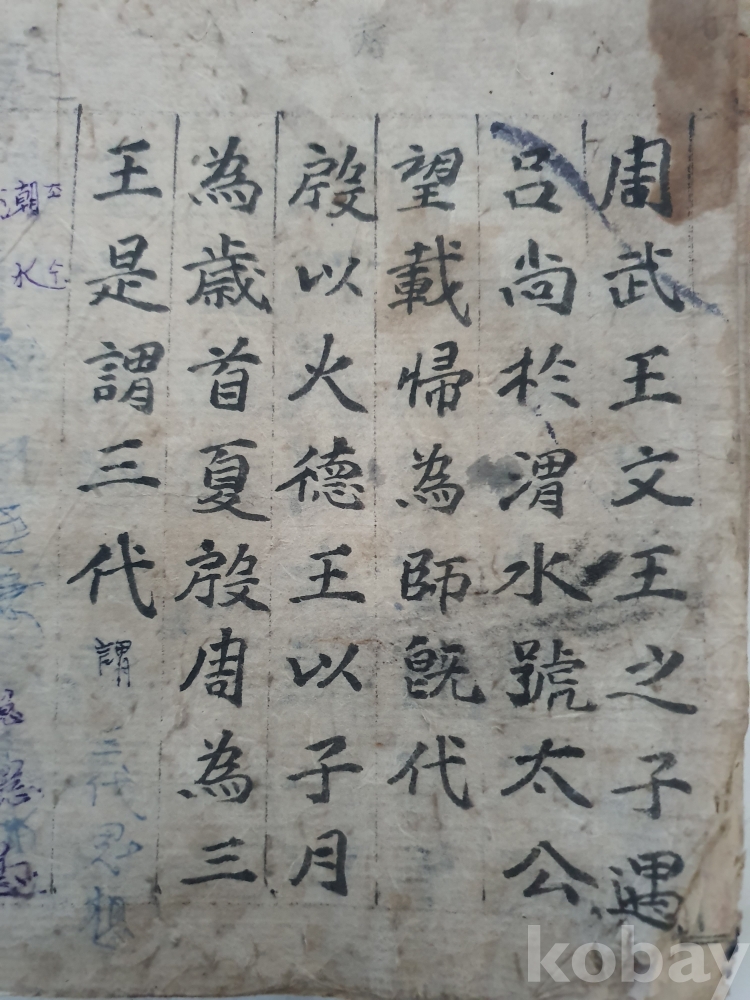 周武王文王之子遇
呂尚於渭水號太公
望載帰為師旣代
殷以火德王以子月
為歲首夏殷周為三
王是謂三代
謂
三代思想
潮
水
kobay